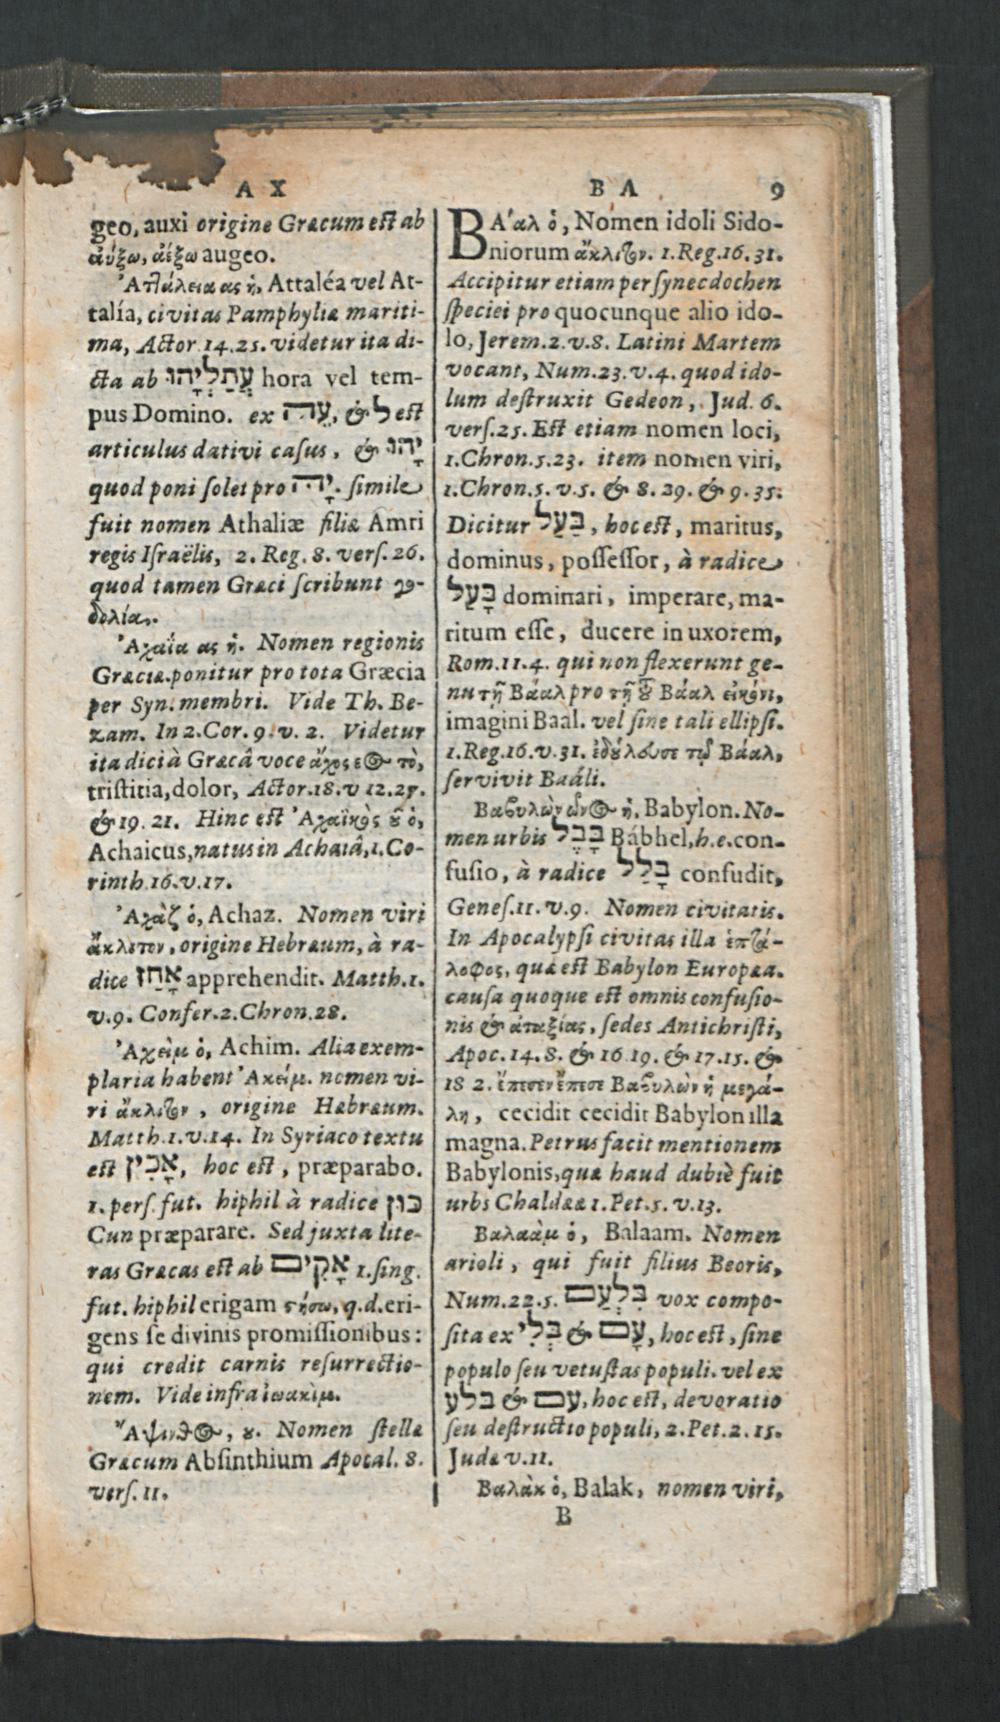 A X
geo, auxi origine Græcum est ab
αὔξω, ἀέξω augeo.
Ἀτλάλεια ας ἡ, Attaléa vel At-
talía, civitas Pamphyliæ mariti-
ma, Actor. 14. 25. videtur ita di-
cta ab עֲתַלְיָהוּ hora vel tem-
pus Domino. ex עֵת, & לְ est
articulus dativi casus, & יָהוּ
quod poni solet pro יָהּ. simile
fuit nomen Athaliæ filiæ Amri
regis Israëlis, 2. Reg. 8. vers. 26.
quod tamen Græci scribunt γο-
δολία.
Ἀχαΐα ας ἡ. Nomen regionis
Græciæ. ponitur pro tota Græcia
per Syn. membri. Vide Th. Be-
zam. In 2. Cor. 9. v. 2. Videtur
ita dici à Græcâ voce ἄχος εος τὸ,
tristitia, dolor, Actor. 18. v 12. 27.
& 19. 21. Hinc est Ἀχαϊκὸς ȣ ὁ,
Achaicus, natus in Achaiâ, 1. Co-
rinth. 16. v. 17.
Ἀχὰζ ὁ, Achaz. Nomen viri
ἄκλιτον, origine Hebræum, à ra-
dice אָחַז apprehendit. Matth. 1.
v. 9. Confer. 2. Chron. 28.
Ἀχεὶμ ὁ, Achim. Alia exem-
plaria habent Ἀκείμ. nomen vi-
ri ἄκλιτον, origine Hæbræum.
Matth. 1. v. 14. In Syriaco textu
est אָכִין, hoc est, præparabo.
1. pers. fut. hiphil à radice כון
Cun præparare. Sed juxta lite-
ras Græcas est ab אָקִים 1. sing.
fut. hiphil erigam στήσω, q. d. eri-
gens se divinis promissionibus:
qui credit carnis resurrectio-
nem. Vide infra ἰωακὶμ.
Ἄψινθος, ȣ. Nomen stellæ
Græcum Absinthium Apocal. 8.
vers. 11.
B A 9
BΑ´αλ ὁ, Nomen idoli Sido-
niorum ἄκλιτον. 1. Reg. 16. 31.
Accipitur etiam per synecdochen
speciei pro quocunque alio ido-
lo, Jerem. 2. v. 8. Latini Martem
vocant, Num. 23. v. 4. quod ido-
lum destruxit Gedeon, Jud. 6.
vers. 25. Est etiam nomen loci,
1. Chron. 5. 23. item nomen viri,
1. Chron. 5. v. 5. & 8. 29. & 9. 35.
Dicitur בַּעַל, hoc est, maritus,
dominus, possessor, à radice
בָּעַל dominari, imperare, ma-
ritum esse, ducere in uxorem,
Rom. 11. 4. qui non flexerunt ge-
nu τῇ Βάαλ pro τῇ τȣ͂ Βάαλ εἰκόνι,
imagini Baal. vel sine tali ellipsi.
1. Reg. 16. v. 31. ἐδȣ́λευσε τῷ Βάαλ,
servivit Baáli.
Βαβυλὼν ῶνος ἡ, Babylon. No-
men urbis בָּבֶל Bábhel, h. e. con-
fusio, à radice בָּלַל confudit,
Genes. 11. v. 9. Nomen civitatis.
In Apocalypsi civitas illa ἑπτά-
λοφος, quæ est Babylon Europæa.
causa quoque est omnis confusio-
nis & ἀταξίας, sedes Antichristi,
Apoc. 14. 8. & 16 19. & 17. 15. &
18 2. ἔπεσεν ἔπεσε Βαβυλὼν ἡ μεγά-
λη, cecidit cecidit Babylon illa
magna. Petrus facit mentionem
Babylonis, quæ haud dubiè fuit
urbs Chaldææ 1. Pet. 5. v. 13.
Βαλαὰμ ὁ, Balaam. Nomen
arioli, qui fuit filius Beoris,
Num. 22. 5. בִּלְעַם vox compo-
sita ex בְּלִי & עָם, hoc est, sine
populo seu vetustas populi. vel ex
בלע & עם, hoc est, devoratio
seu destructio populi, 2. Pet. 2. 15.
Judæ v. 11.
Βαλὰκ ὁ, Balak, nomen viri,
B